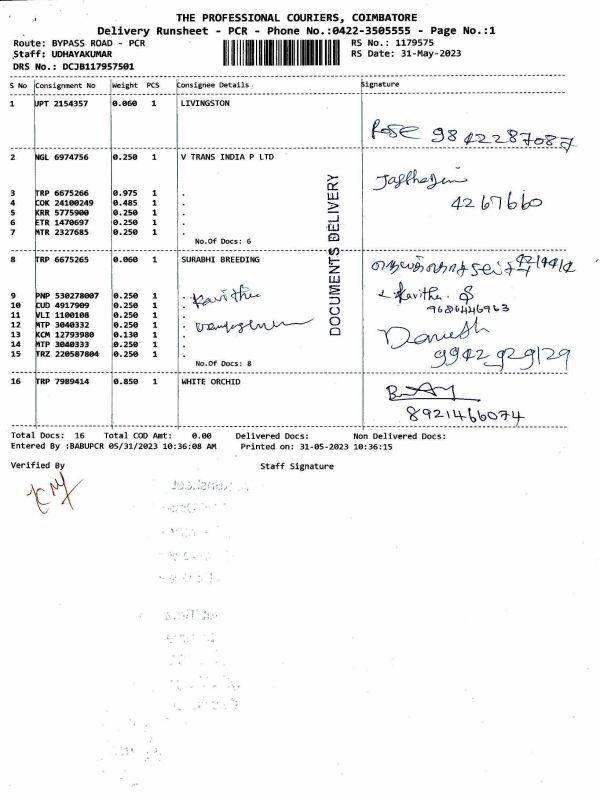 THE PROFESSIONAL COURIERS, COIMBATORE
Delivery Runsheet - PCR - Phone No.:0422-3505555 - Page No.:1
Route: BYPASS ROAD - PCR
RS No.: 1179575
Staff: UDHAYAKUMAR
RS Date: 31-May-2023
DRS No.: DCJB117957501
S No Consignment No Weight PCS Consignee Details Signature
1 UPT 2154357 0.060 1 LIVINGSTON
Rose 9842287087
2 NGL 6974756 0.250 1 V TRANS INDIA P LTD
3 TRP 6675266 0.975 1 .
4 COK 24100249 0.485 1 .
4267660
5 KRR 5775900 0.250 1 .
6 ETR 1470697 0.250 1 .
7 MTR 2327685 0.250 1 .
No.Of Docs: 6
DOCUMENTS DELIVERY
8 TRP 6675265 0.060 1 SURABHI BREEDING
9 PNP 530278007 0.250 1 . Kavitha
Kavitha. S
10 CUD 4917909 0.250 1 .
9626446963
11 VLI 1100108 0.250 1 .
12 MTP 3040332 0.250 1 .
13 KCM 12793980 0.130 1 .
14 MTP 3040333 0.250 1 .
15 TRZ 220587804 0.250 1 .
9942929129
No.Of Docs: 8
16 TRP 7989414 0.850 1 WHITE ORCHID
8921466074
Total Docs: 16 Total COD Amt: 0.00 Delivered Docs: Non Delivered Docs:
Entered By :BABUPCR 05/31/2023 10:36:08 AM Printed on: 31-05-2023 10:36:15
Verified By Staff Signature